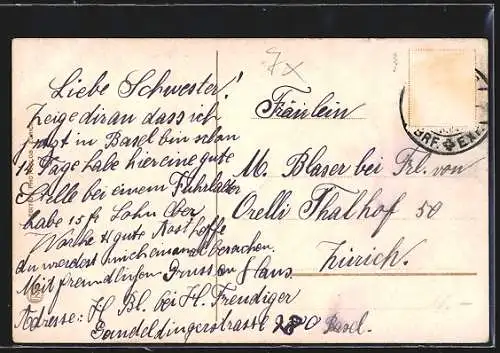 Liebe Schwester!
Zeige dir an dass ich
jetzt in Basel bin schon
14 Tage habe hier eine gute
Stelle bei einem Fuhrhalter
habe 15 fr Lohn per
Woche & gute Kost hoffe
du werdest mich einmal besuchen.
Mit freundlichen Grüssen Hans
Adresse: H Bl. bei H. Freudiger
Gundeldingerstrasse 280 Basel.
7x
Fräulein
M. Blaser bei Frl. von
Orelli Thalhof 50
Zürich.
BRF. EXP.